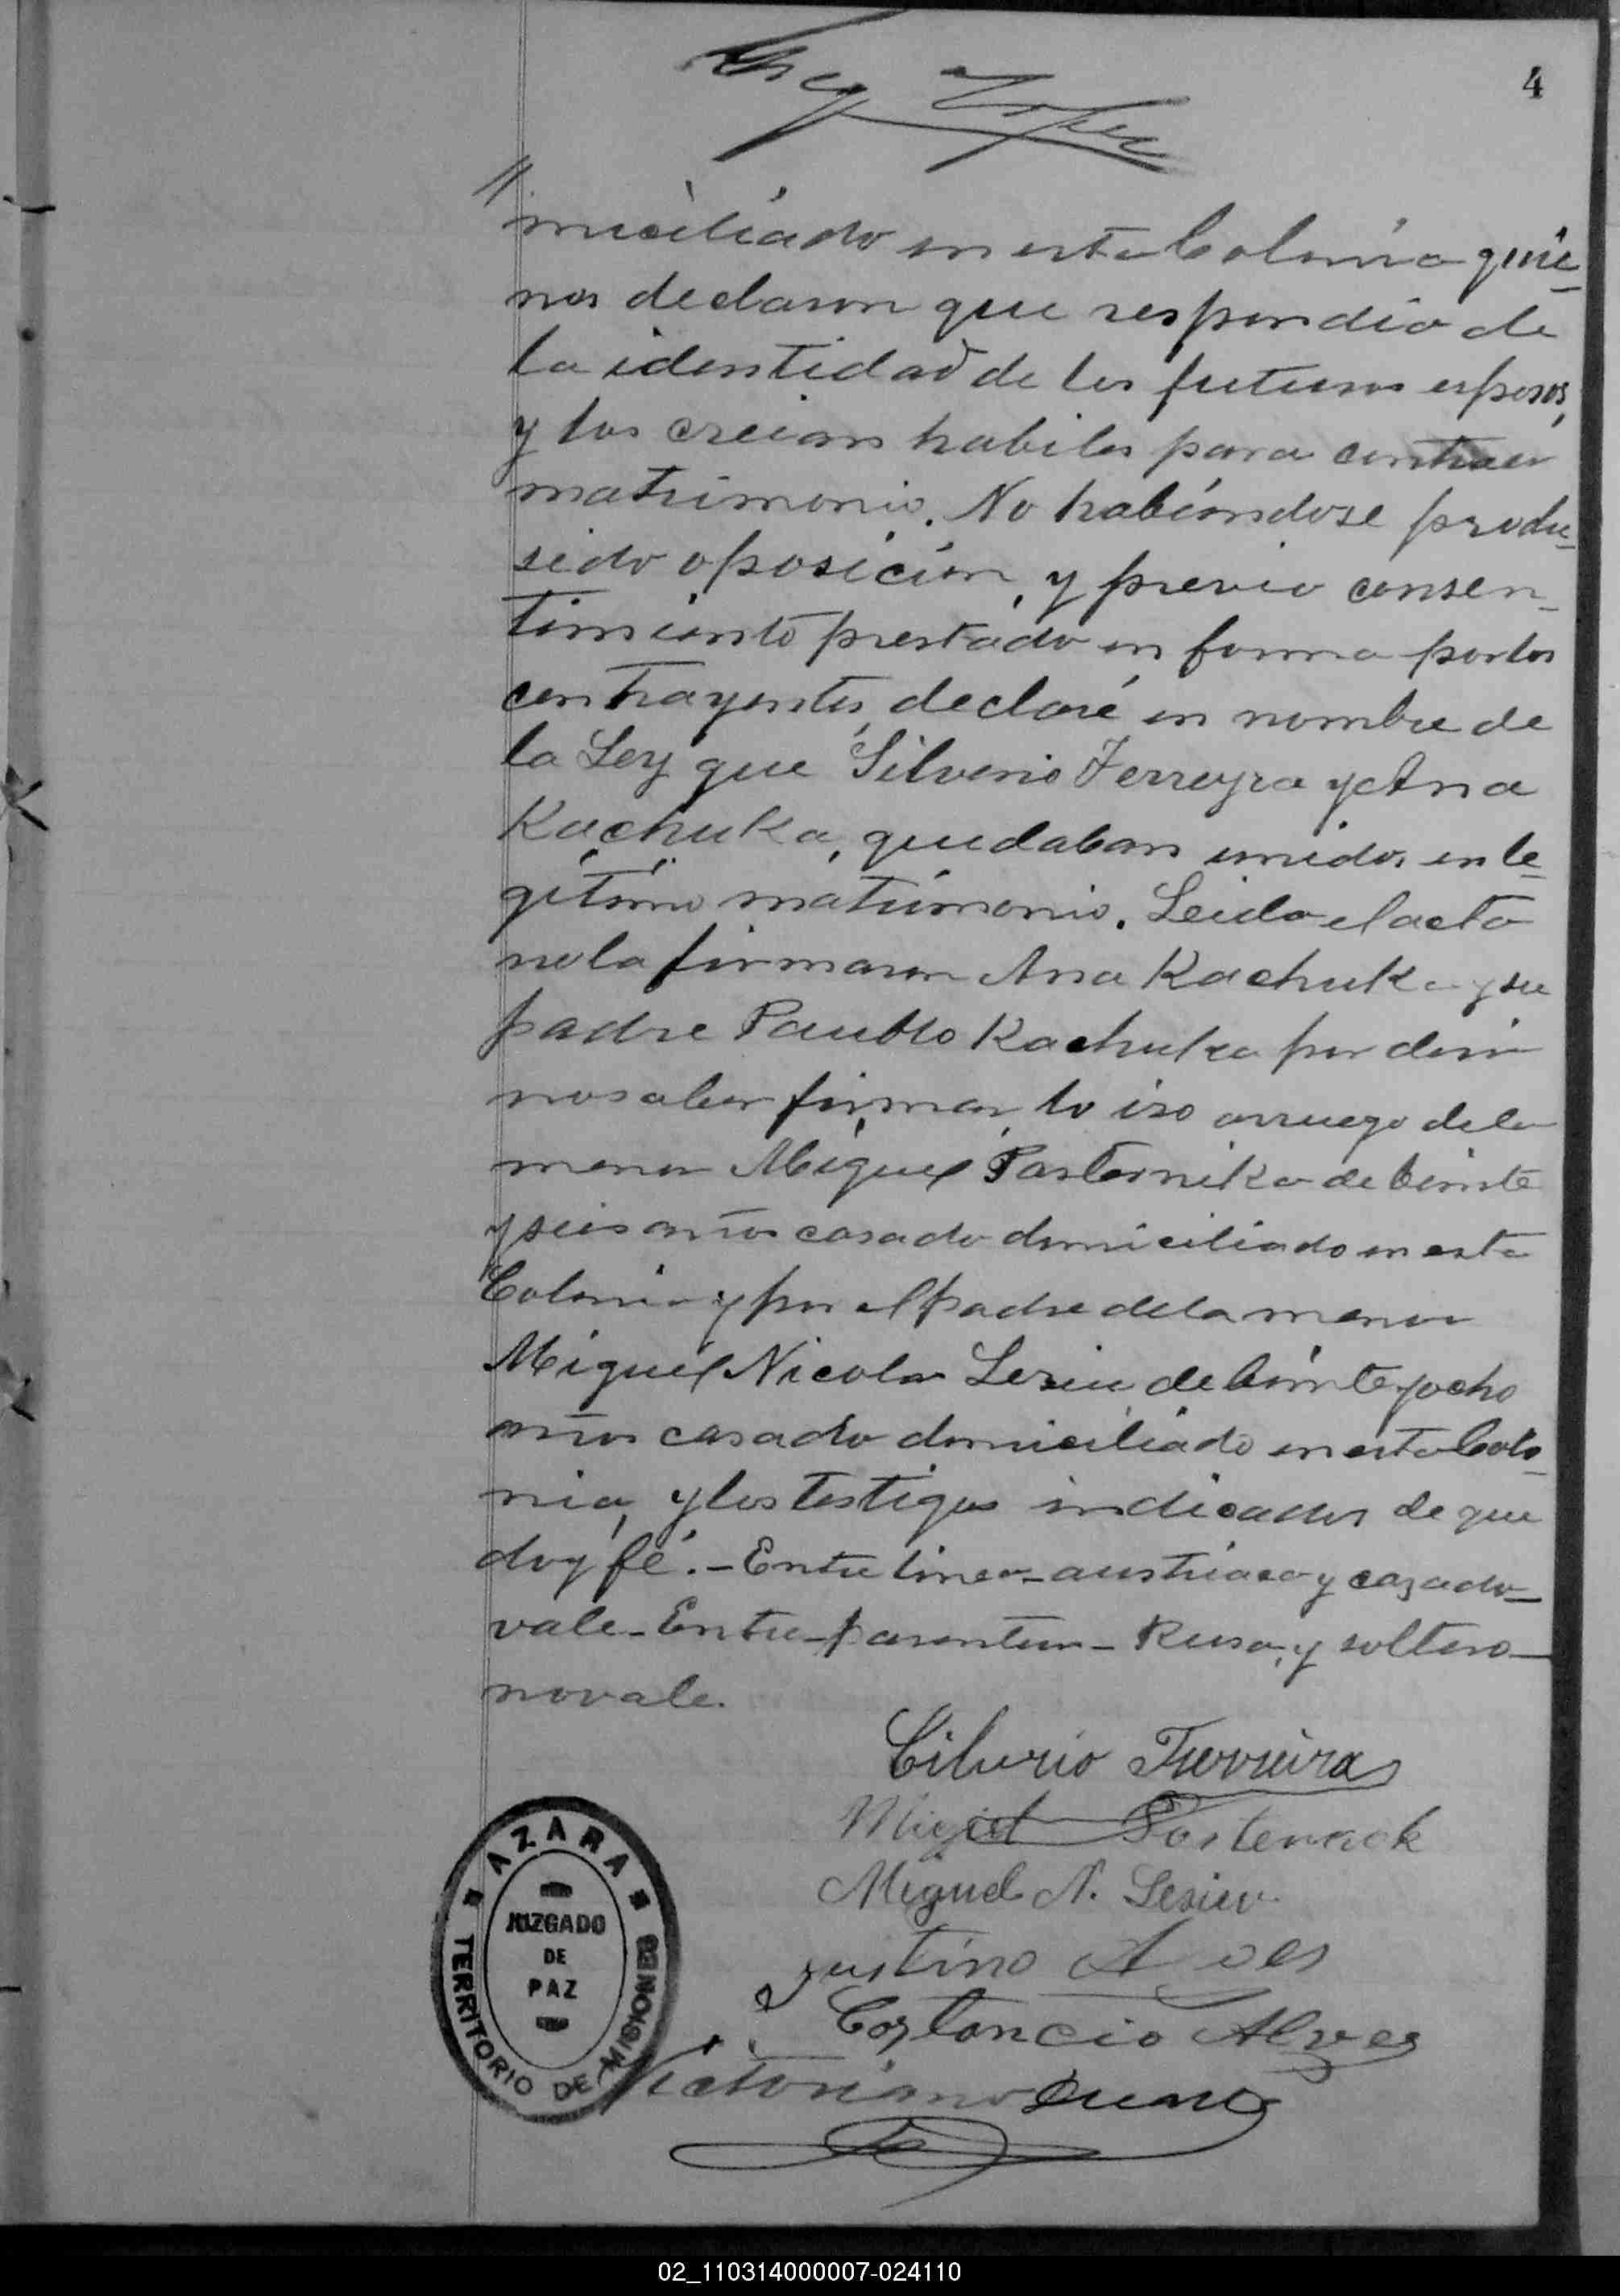 4
//
miciliado en esta Colonia quie-
nes declaron que respondia de
la identidad de los futuros esposos,
y los creian habiles para contraer
matrimonio. No habiendose produ-
sido oposición, y previo consen-
timiento prestado en forma por los
contrayentes, declaré en nombre de
la Ley que Silverio Ferreyra y Ana
Kachuka, quedaban unidos en le-
gitimo matrimonio. Leida el acta
no la firmaron Ana Kachuka y su
padre Paublo Kachuka por decir
no saber firmar, lo iso arruego de la
menor Miguel Pasternika de beinte
y seis años casado domiciliado en esta
Colonia y por el padre de la menor
Miguel Nicolas Lesiu de beinte y ocho
años casado domiciliado en esta Colo-
nia, y los testigos indicados de que
doy fé.-Entre linea-austriaca y casado-
vale-Entre-parentesis-Rusa, y soltero-
no vale.
Cilverio Ferreira
Miguel Pasternack
Miguel N. Lesiuv
Justino A
Costancio Alves
Victoriano
AZARA
JUZGADO
DE
PAZ
TERRITORIO DE MISIONES
02_110314000007-024110